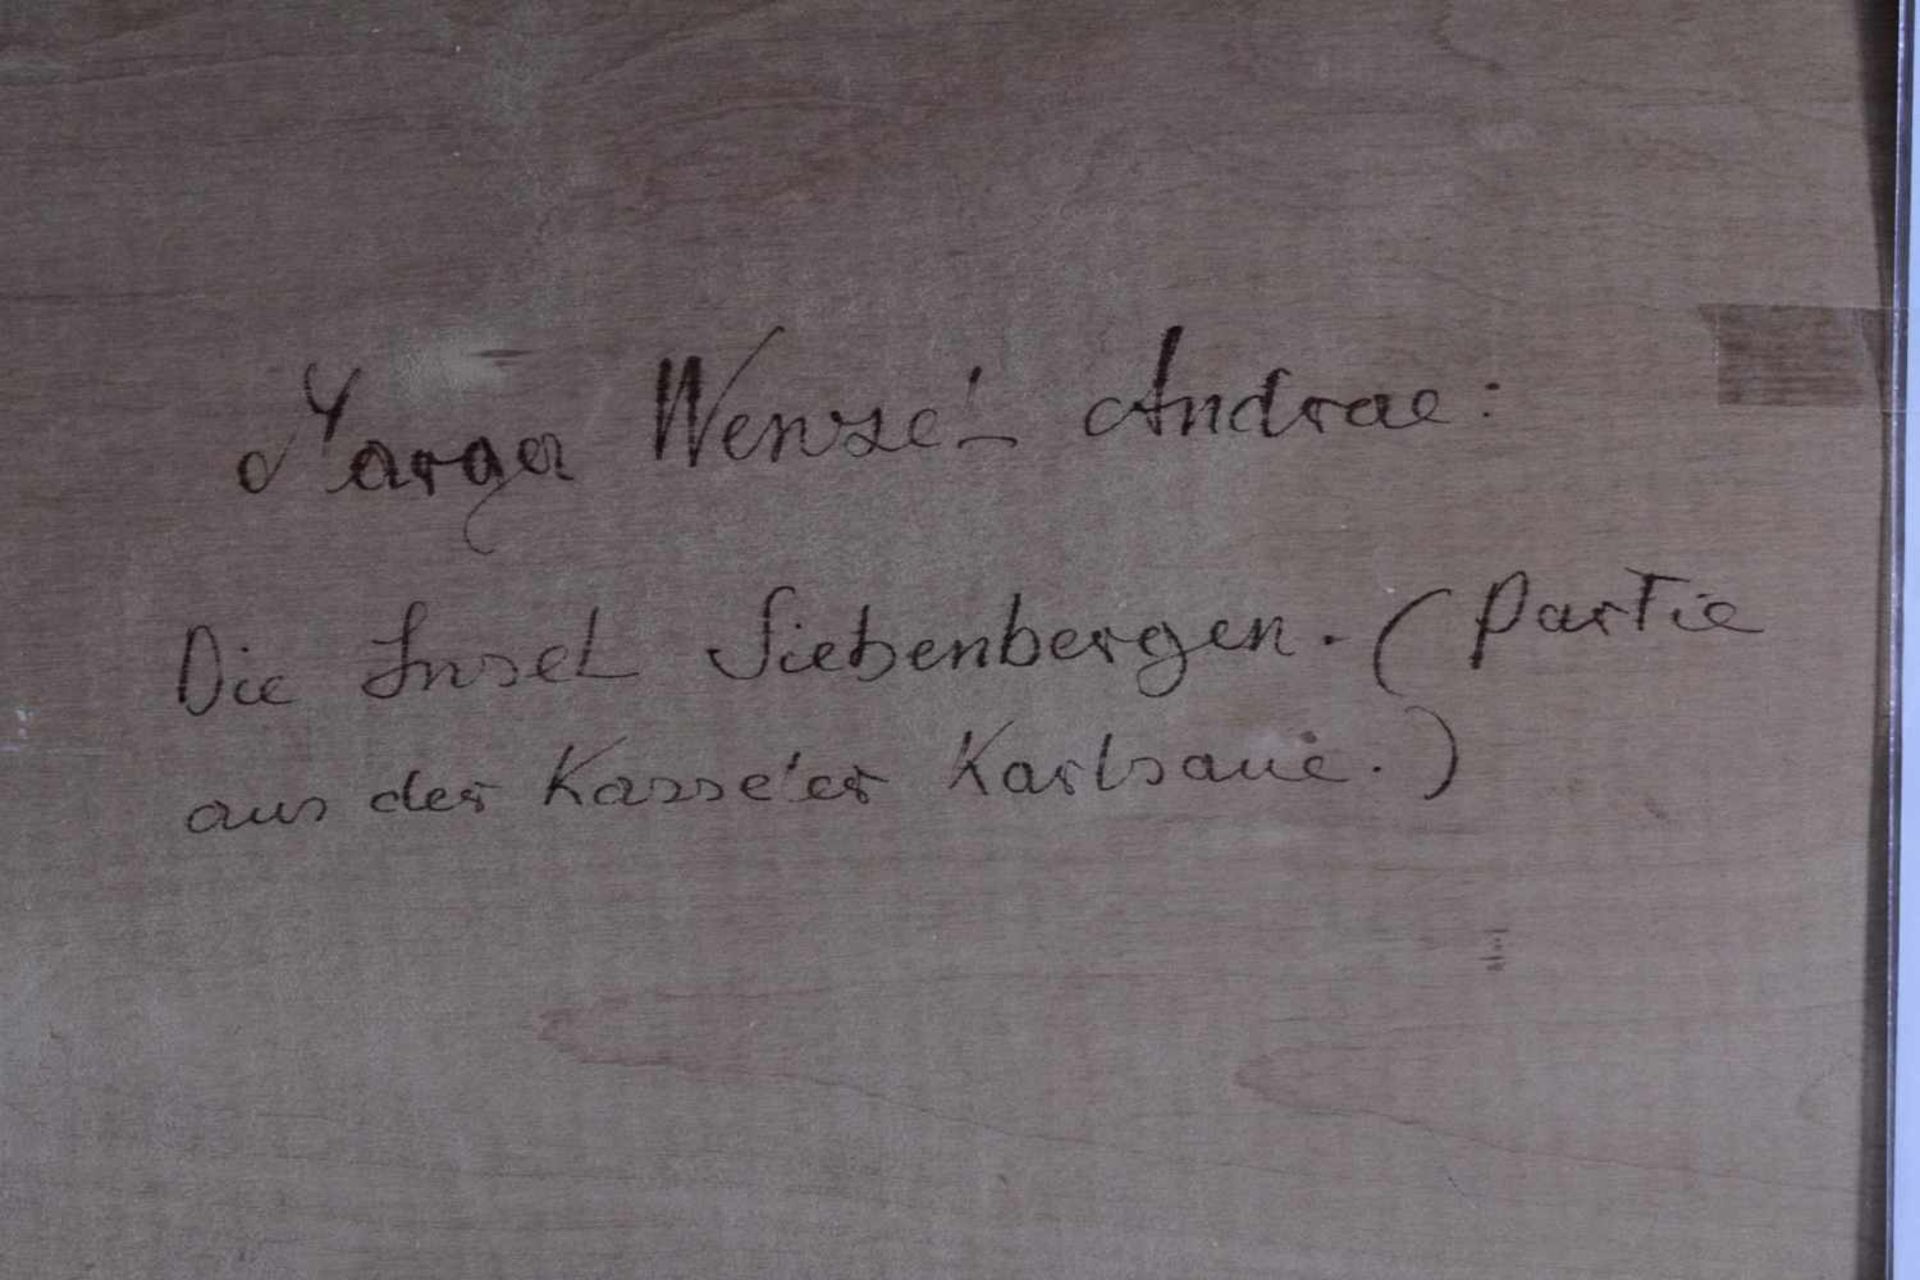 Marga Wenzel-Andrae:
Die Insel Siebenbergen. (Partie
aus der Kasseler Karlsaue.)